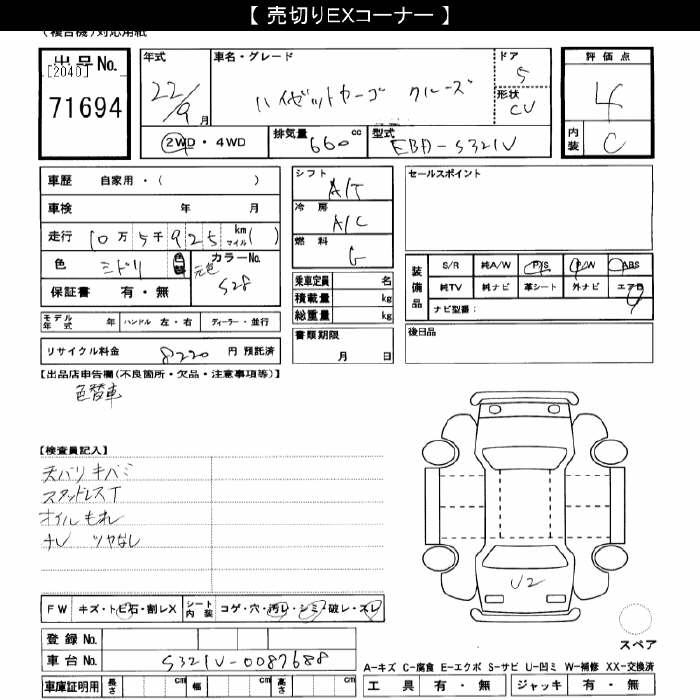 【 売切りEXコーナー 】
(複合機)対応用紙
出品No.
[2040]
71694
年式
22/9月
車名・グレード
ハイゼットカーゴ クルーズ
ドア
5
形状
CV
評価点
4
内装
C
2WD・4WD
排気量
660 cc
型式
EBD-S321V
車歴 自家用・( )
車検 年 月
走行 10万5千925 km マイル( )
色 ミドリ
元色
カラーNo.
S28
保証書 有・無
シフト
A/T
冷房
A/C
燃料
G
乗車定員 名
積載量 kg
総重量 kg
書類期限
月 日
セールスポイント
装備品
S/R 純A/W P/S P/W ABS
純TV 純ナビ 革シート 外ナビ エアB
4
ナビ型番:
後日品
モデル年式 年 ハンドル 左・右 ディーラー・並行
リサイクル料金 8220 円 預託済
【出品店申告欄(不良箇所・欠品・注意事項等)】
色替車
【検査員記入】
天バリキバミ
スタッドレスT
オイルもれ
ナシ ツヤなし
FW キズ・トビ石・割レX シート内装 コゲ・穴・汚レ・シミ・破レ・スレ
U2
スペア
登録No.
車台No. S321V-0087688
車庫証明用 長さ cm 幅 cm 高さ cm
A-キズ C-腐食 E-エクボ S-サビ U-凹ミ W-補修 XX-交換済
工具 有・無 ジャッキ 有・無